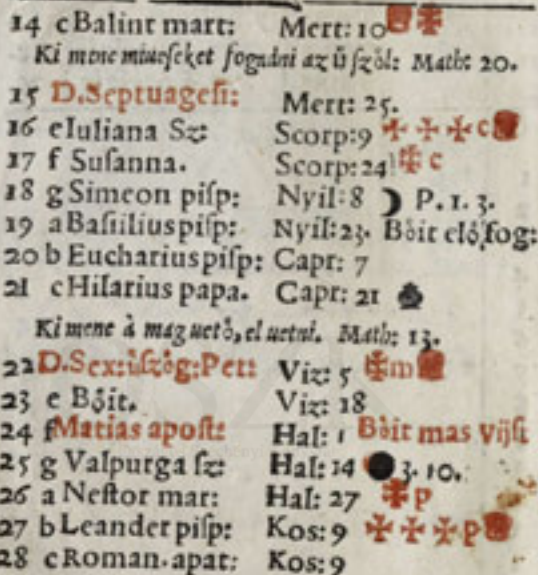 14 c Balint mart: Mert: 10
Ki mene miueseket fogadni az ű ſzől: Math: 20.
15 D. Septuageſi: Mert: 25.
16 e Iuliana Sz: Scorp: 9 c
17 f Suſanna. Scorp: 24 c
18 g Simeon piſp: Nyil: 8 ☽ P. 1. 3.
19 a Baſilius piſp: Nyil: 23. Bőit elő fog:
20 b Eucharius piſp: Capr: 7
21 c Hilarius papa. Capr: 21
Ki mene à mag uető, el uetni. Math: 13.
22 D. Sex: űſzőg: Pet: Viz: 5 m
23 e Bőit. Viz: 18
24 f Matias apoſt: Hal: 1 Bőit mas vijſi
25 g Valpurga ſz: Hal: 14 ● 3. 10.
26 a Neſtor mar: Hal: 27 p
27 b Leander piſp: Kos: 9 p
28 c Roman. apat: Kos: 9